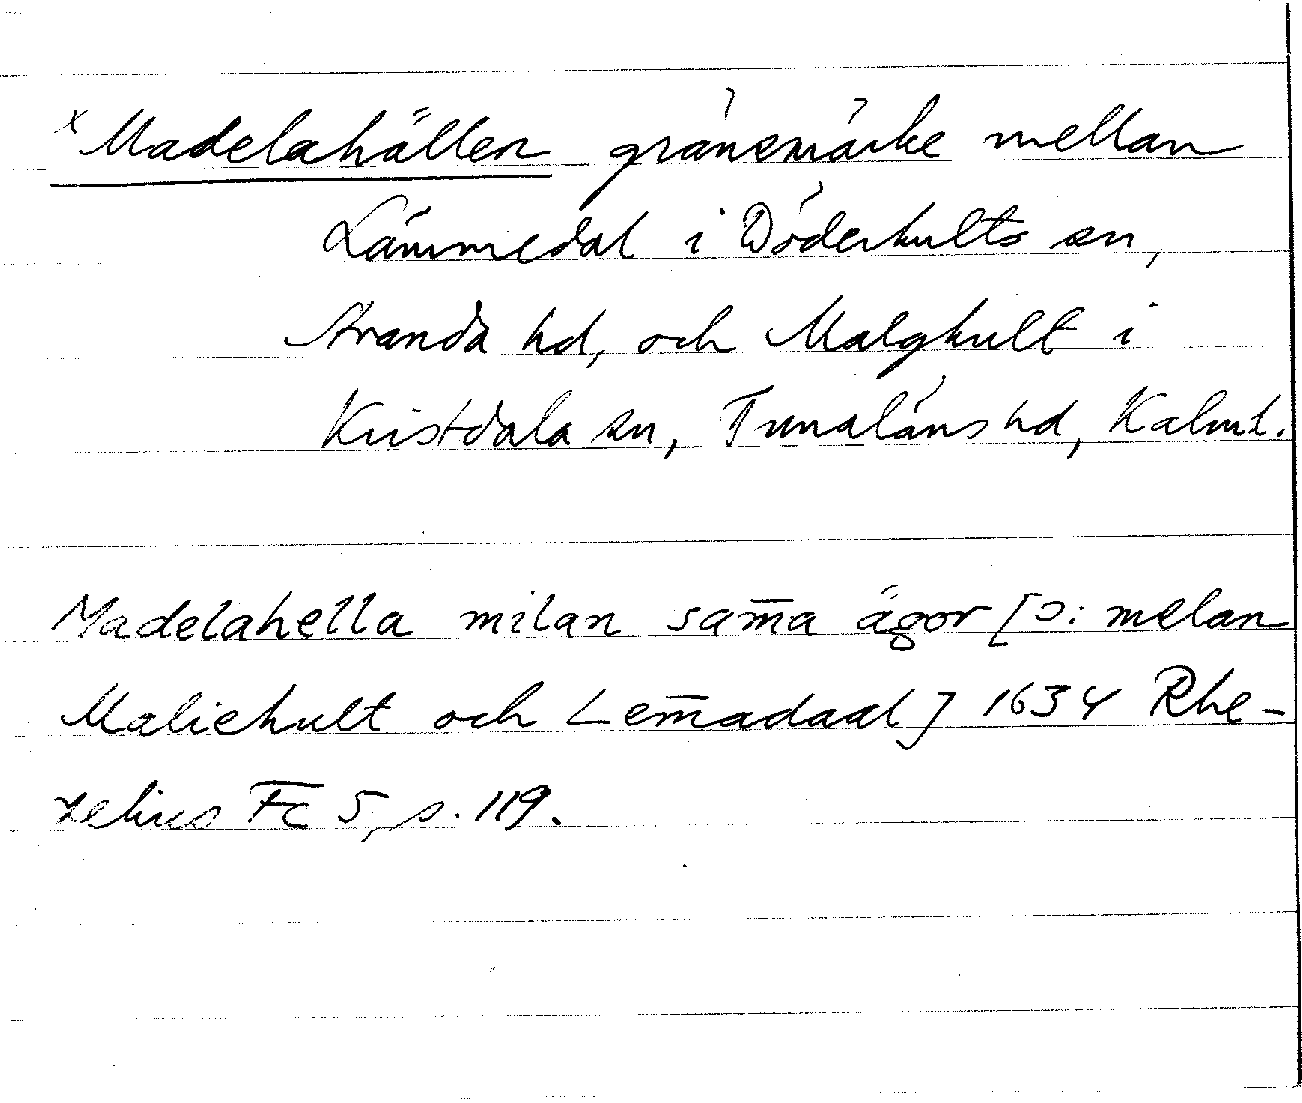 x Madelahällen gränsmärke mellan
Lämmedal i Döderhults sn,
Stranda hd, och Malghult i
Kristdala sn, Tunaläns hd, Kalml.
Madelahella milan sam̄a ägor [ɔ: melan
Maliehult och Lem̄adaal] 1634 Rhe-
zelius Fc 5, s. 119.